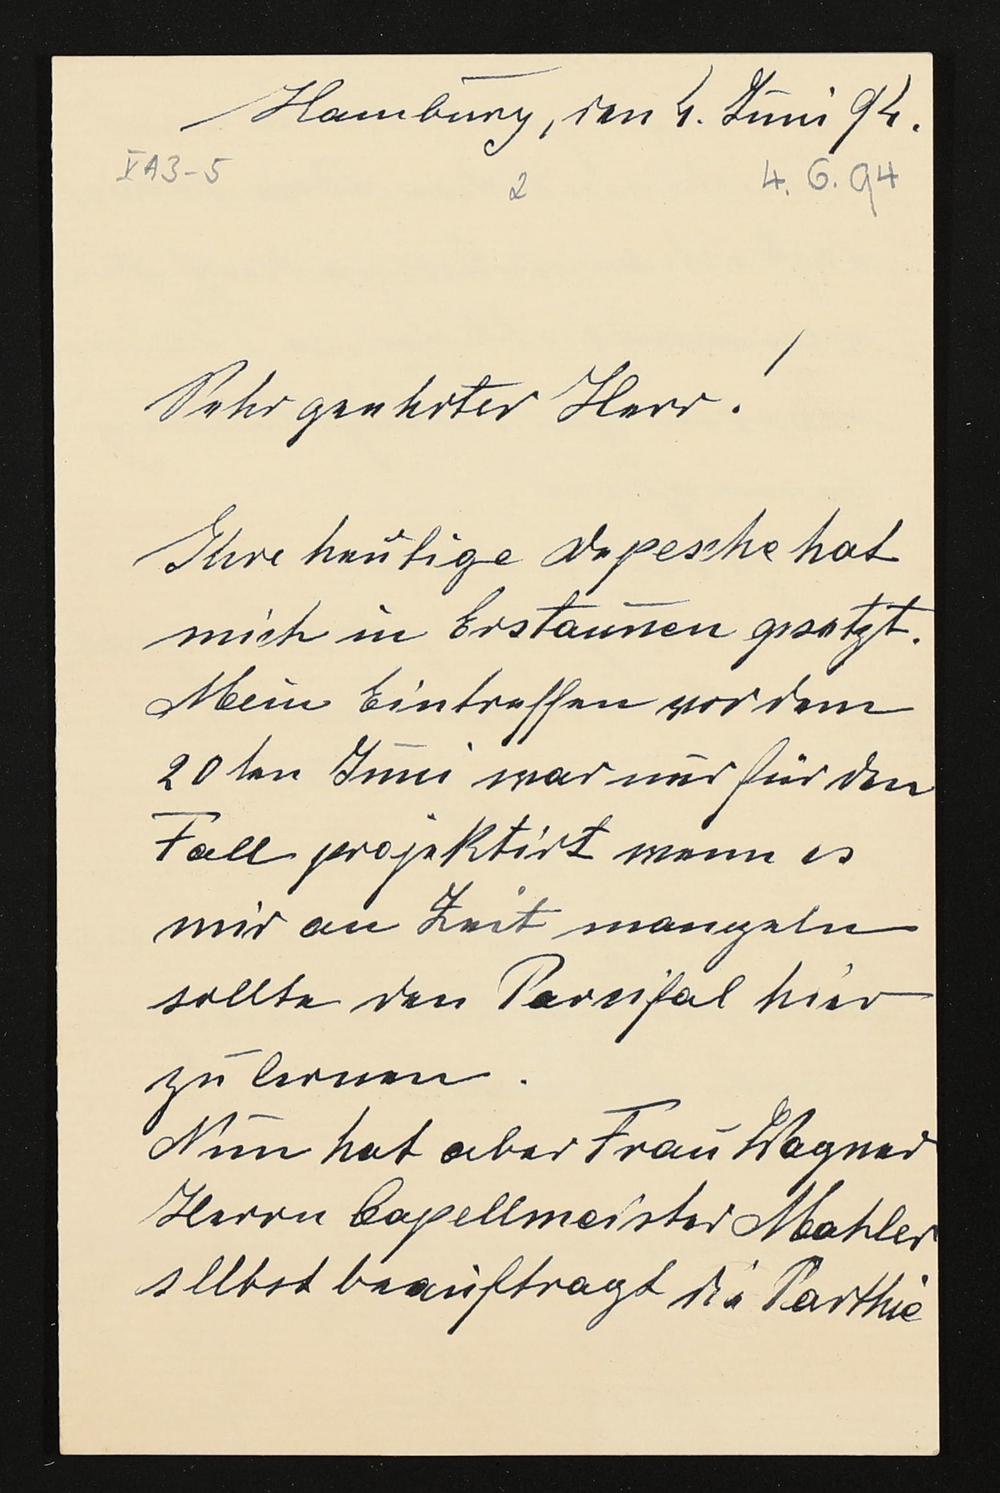 Hamburg, den 4. Juni 94.
VA3-5 2 4. 6. 94
Sehr geehrter Herr!
Ihre heutige Depesche hat
mich in Erstaunen gesetzt.
Mein Eintreffen vor dem
20ten Juni war nur für den
Fall projektirt wenn es
mir an Zeit mangeln
sollte den Parsifal hier
zu lernen.
Nun hat aber Frau Wagner
Herrn Capellmeister Mahler
selbst beauftragt die Parthie